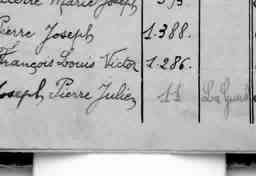 Marie Joseph
Pierre Joseph 1.388.
François Louis Victor 1.286.
Joseph Pierre Julien 11